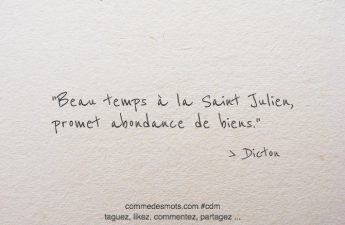 "Beau temps à la Saint Julien,
promet abondance de biens."
> Dicton
commedesmots.com #cdm
taguez, likez, commentez, partagez ...